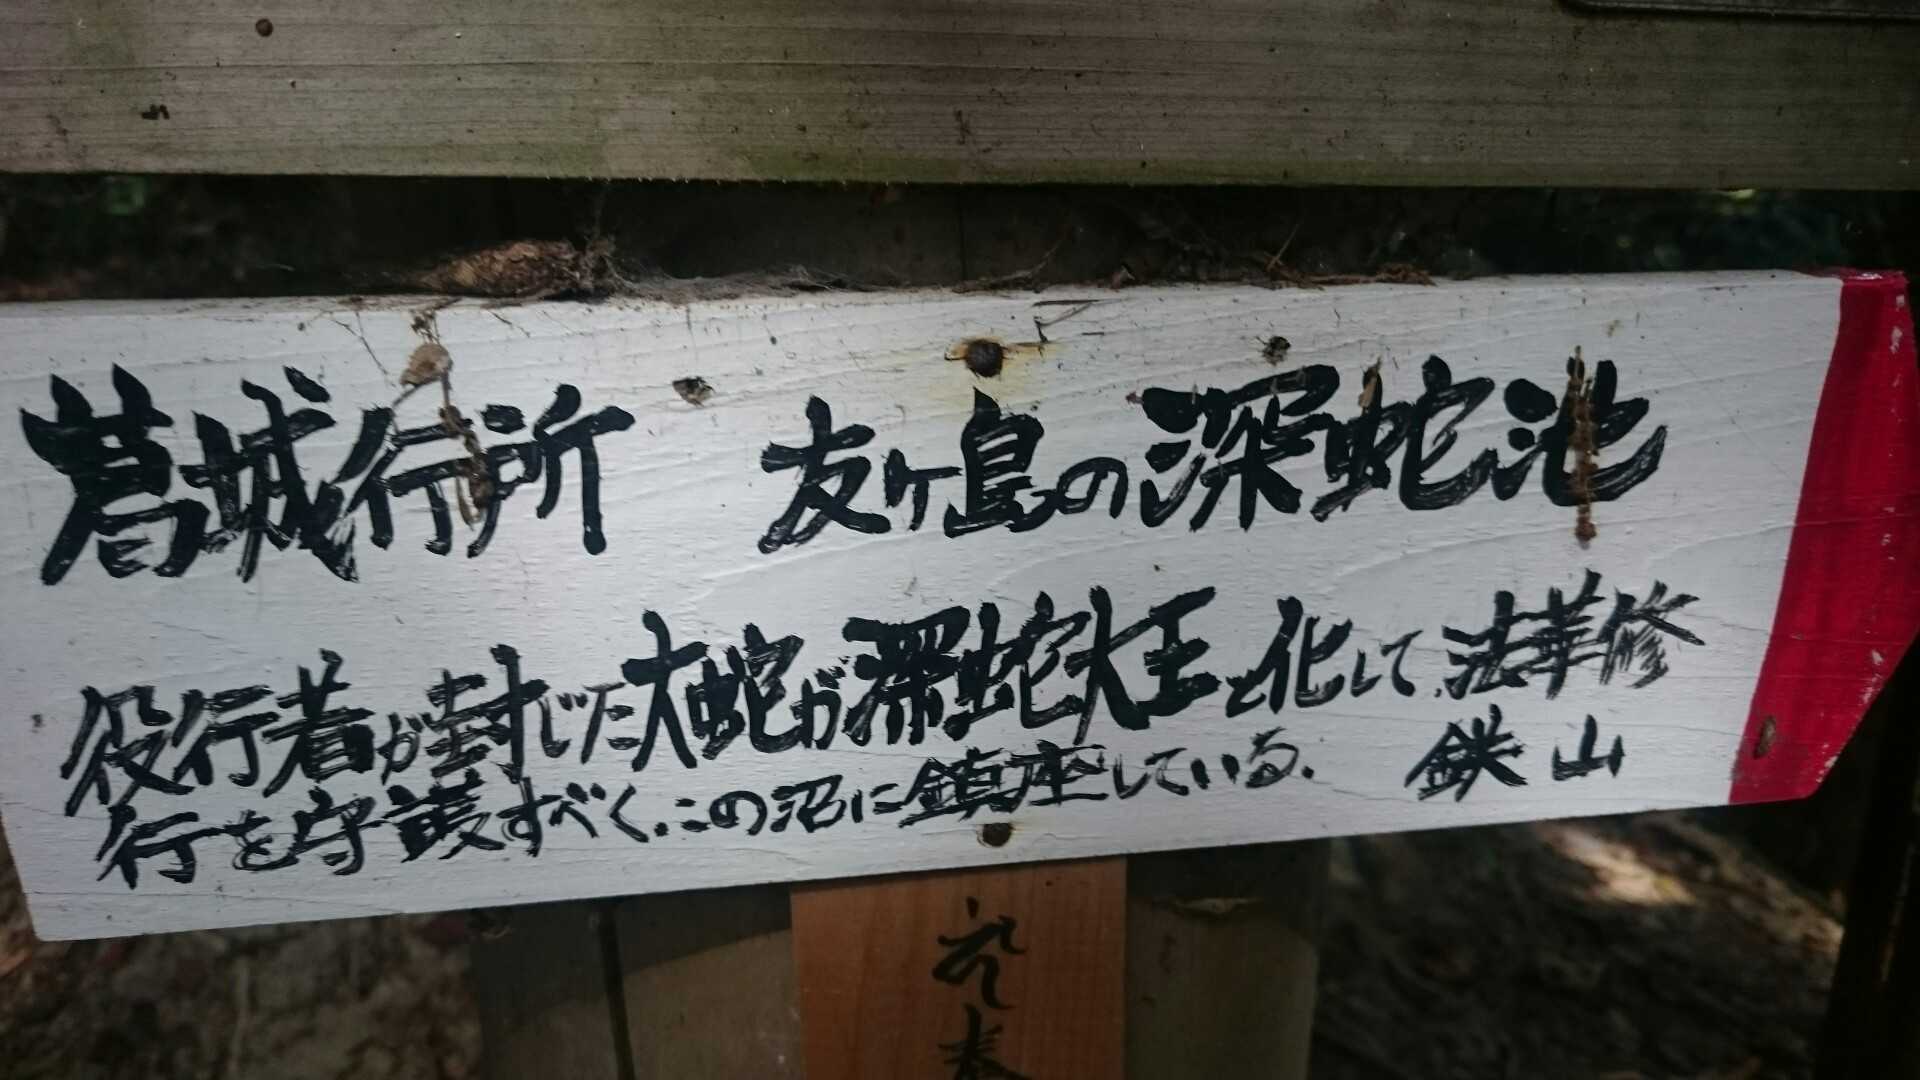 葛城行所　友ヶ島の深蛇池
役行者が封じた大蛇が深蛇大王と化して、法華修
行を守護すべく、この沼に鎮座している。　鉄山
奉